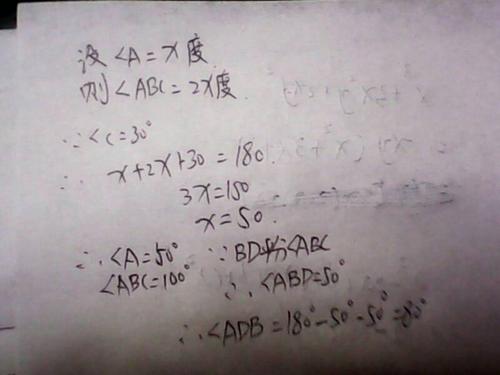 设∠A=x度
则∠ABC=2x度.
∵∠C=30°
∴ x+2x+30=180.
3x=150
x=50.
∴∠A=50° ∵BD平分∠ABC
∠ABC=100° ∴∠ABD=50°
∴∠ADB=180°-50°-50°=80°